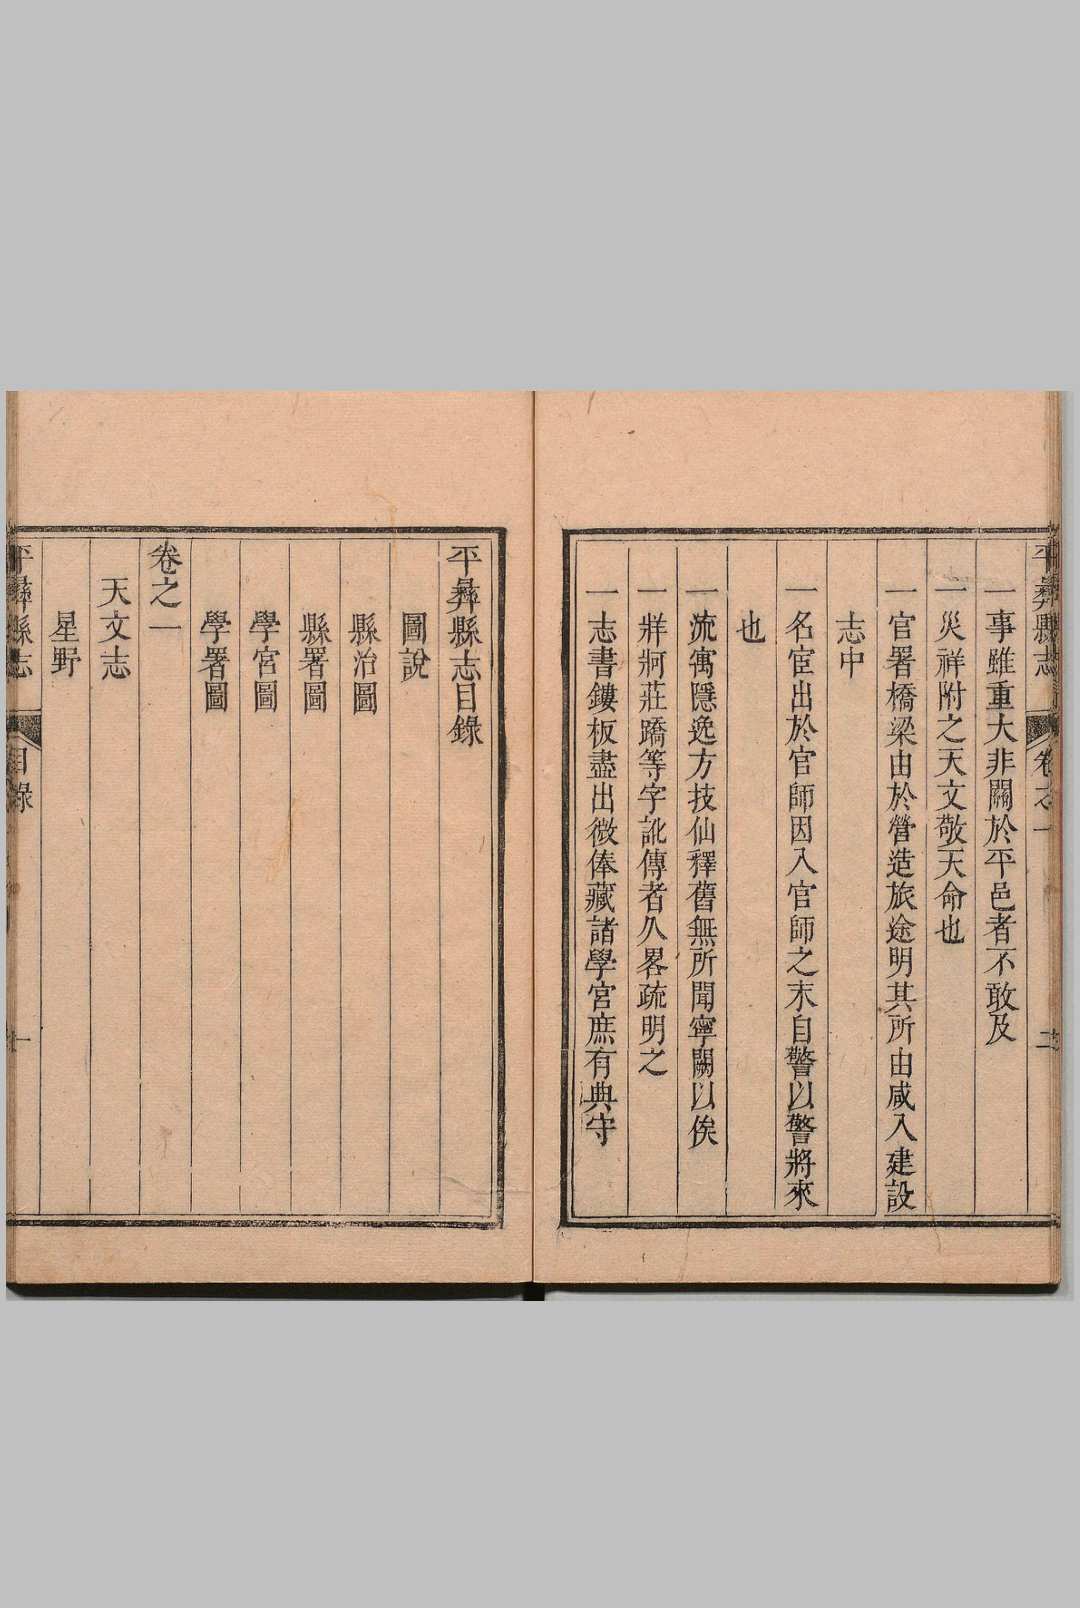 平彜縣志 卷之一 二
一事雖重大非關於平邑者不敢及
一災祥附之天文敬天命也
一官署橋梁由於營造旅途明其所由咸入建設
志中
一名宦出於官師因入官師之末自警以警將來
也
一流寓隱逸方技仙釋舊無所聞寧闕以俟
一牂牁莊蹻等字訛傳者久畧疏明之
一志書鏤板盡出微俸藏諸學宮庶有典守
平彜縣志目錄
圖說
縣治圖
縣署圖
學宮圖
學署圖
卷之一
天文志
星野
平彜縣志 目錄 一